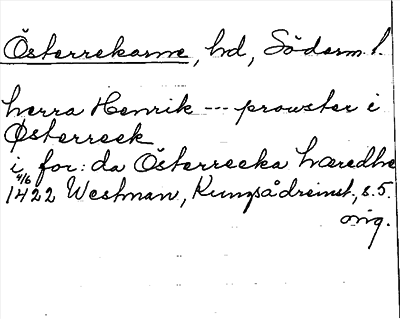 Österrekarne, hd, Söderm l.
herra Henrik --- prowster i
Østerreek
i for:da Österrecka hæredhe
4/6
1422 Westman, Kungsådreinst., s. 5.
orig.